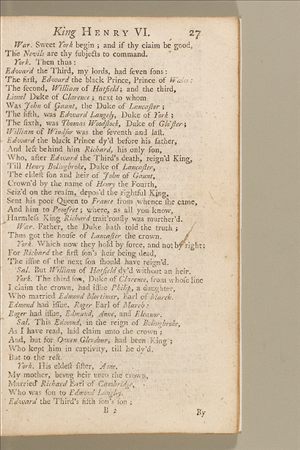 King HENRY VI. 27
War. Sweet York begin; and if thy claim be good,
The Nevills are thy subjects to command.
York. Then thus:
Edward the Third, my lords, had seven sons:
The first, Edward the black Prince, Prince of Wales:
The second, William of Hatfield; and the third,
Lionel Duke of Clarence; next to whom
Was John of Gaunt, the Duke of Lancaster;
The fifth, was Edward Langely, Duke of York;
The sixth, was Thomas Woodstock, Duke of Gloster;
William of Windsor was the seventh and last.
Edward the black Prince dy'd before his father,
And left behind him Richard, his only son,
Who, after Edward the Third's death, reign'd King,
Till Henry Bolingbroke, Duke of Lancaster,
The eldest son and heir of John of Gaunt,
Crown'd by the name of Henry the Fourth,
Seiz'd on the realm, depos'd the rightful King,
Sent his poor Queen to France from whence she came,
And him to Pomfret; where, as all you know,
Harmless King Richard trait'rously was murther'd.
War. Father, the Duke hath told the truth;
Thus got the house of Lancaster the crown.
York. Which now they hold by force, and not by right;
For Richard the first son's heir being dead,
The issue of the next son should have reign'd.
Sal. But William of Hatfield dy'd without an heir.
York. The third son, Duke of Clarence, from whose line
I claim the crown, had issue Philip, a daughter,
Who married Edmund Mortimer, Earl of March.
Edmund had issue, Roger Earl of March;
Roger had issue, Edmund, Anne, and Eleanor.
Sal. This Edmund, in the reign of Bolingbroke,
As I have read, laid claim unto the crown;
And, but for Owen Glendour, had been King;
Who kept him in captivity, till he dy'd.
But to the rest.
York. His eldest sister, Anne,
My mother, being heir unto the crown,
Married Richard Earl of Cambridge,
Who was son to Edmund Langley,
Edward the Third's fifth son's son;
B 2 By